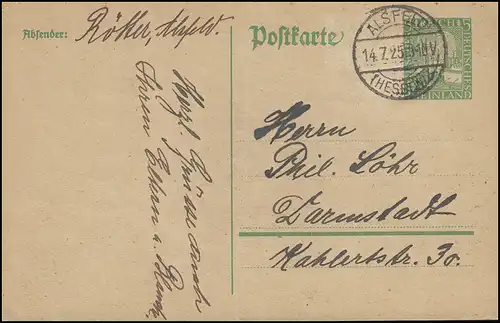 Absender: Rötter, Alsfeld.
Postkarte
ALSFELD
14.7.25.
(HESSEN)
5
RHEINLAND
Herrn
Phil. Löhr
Darmstadt
Kahlertstr. 30.
Herzl. Grüsse auch
Ihren Eltern u.